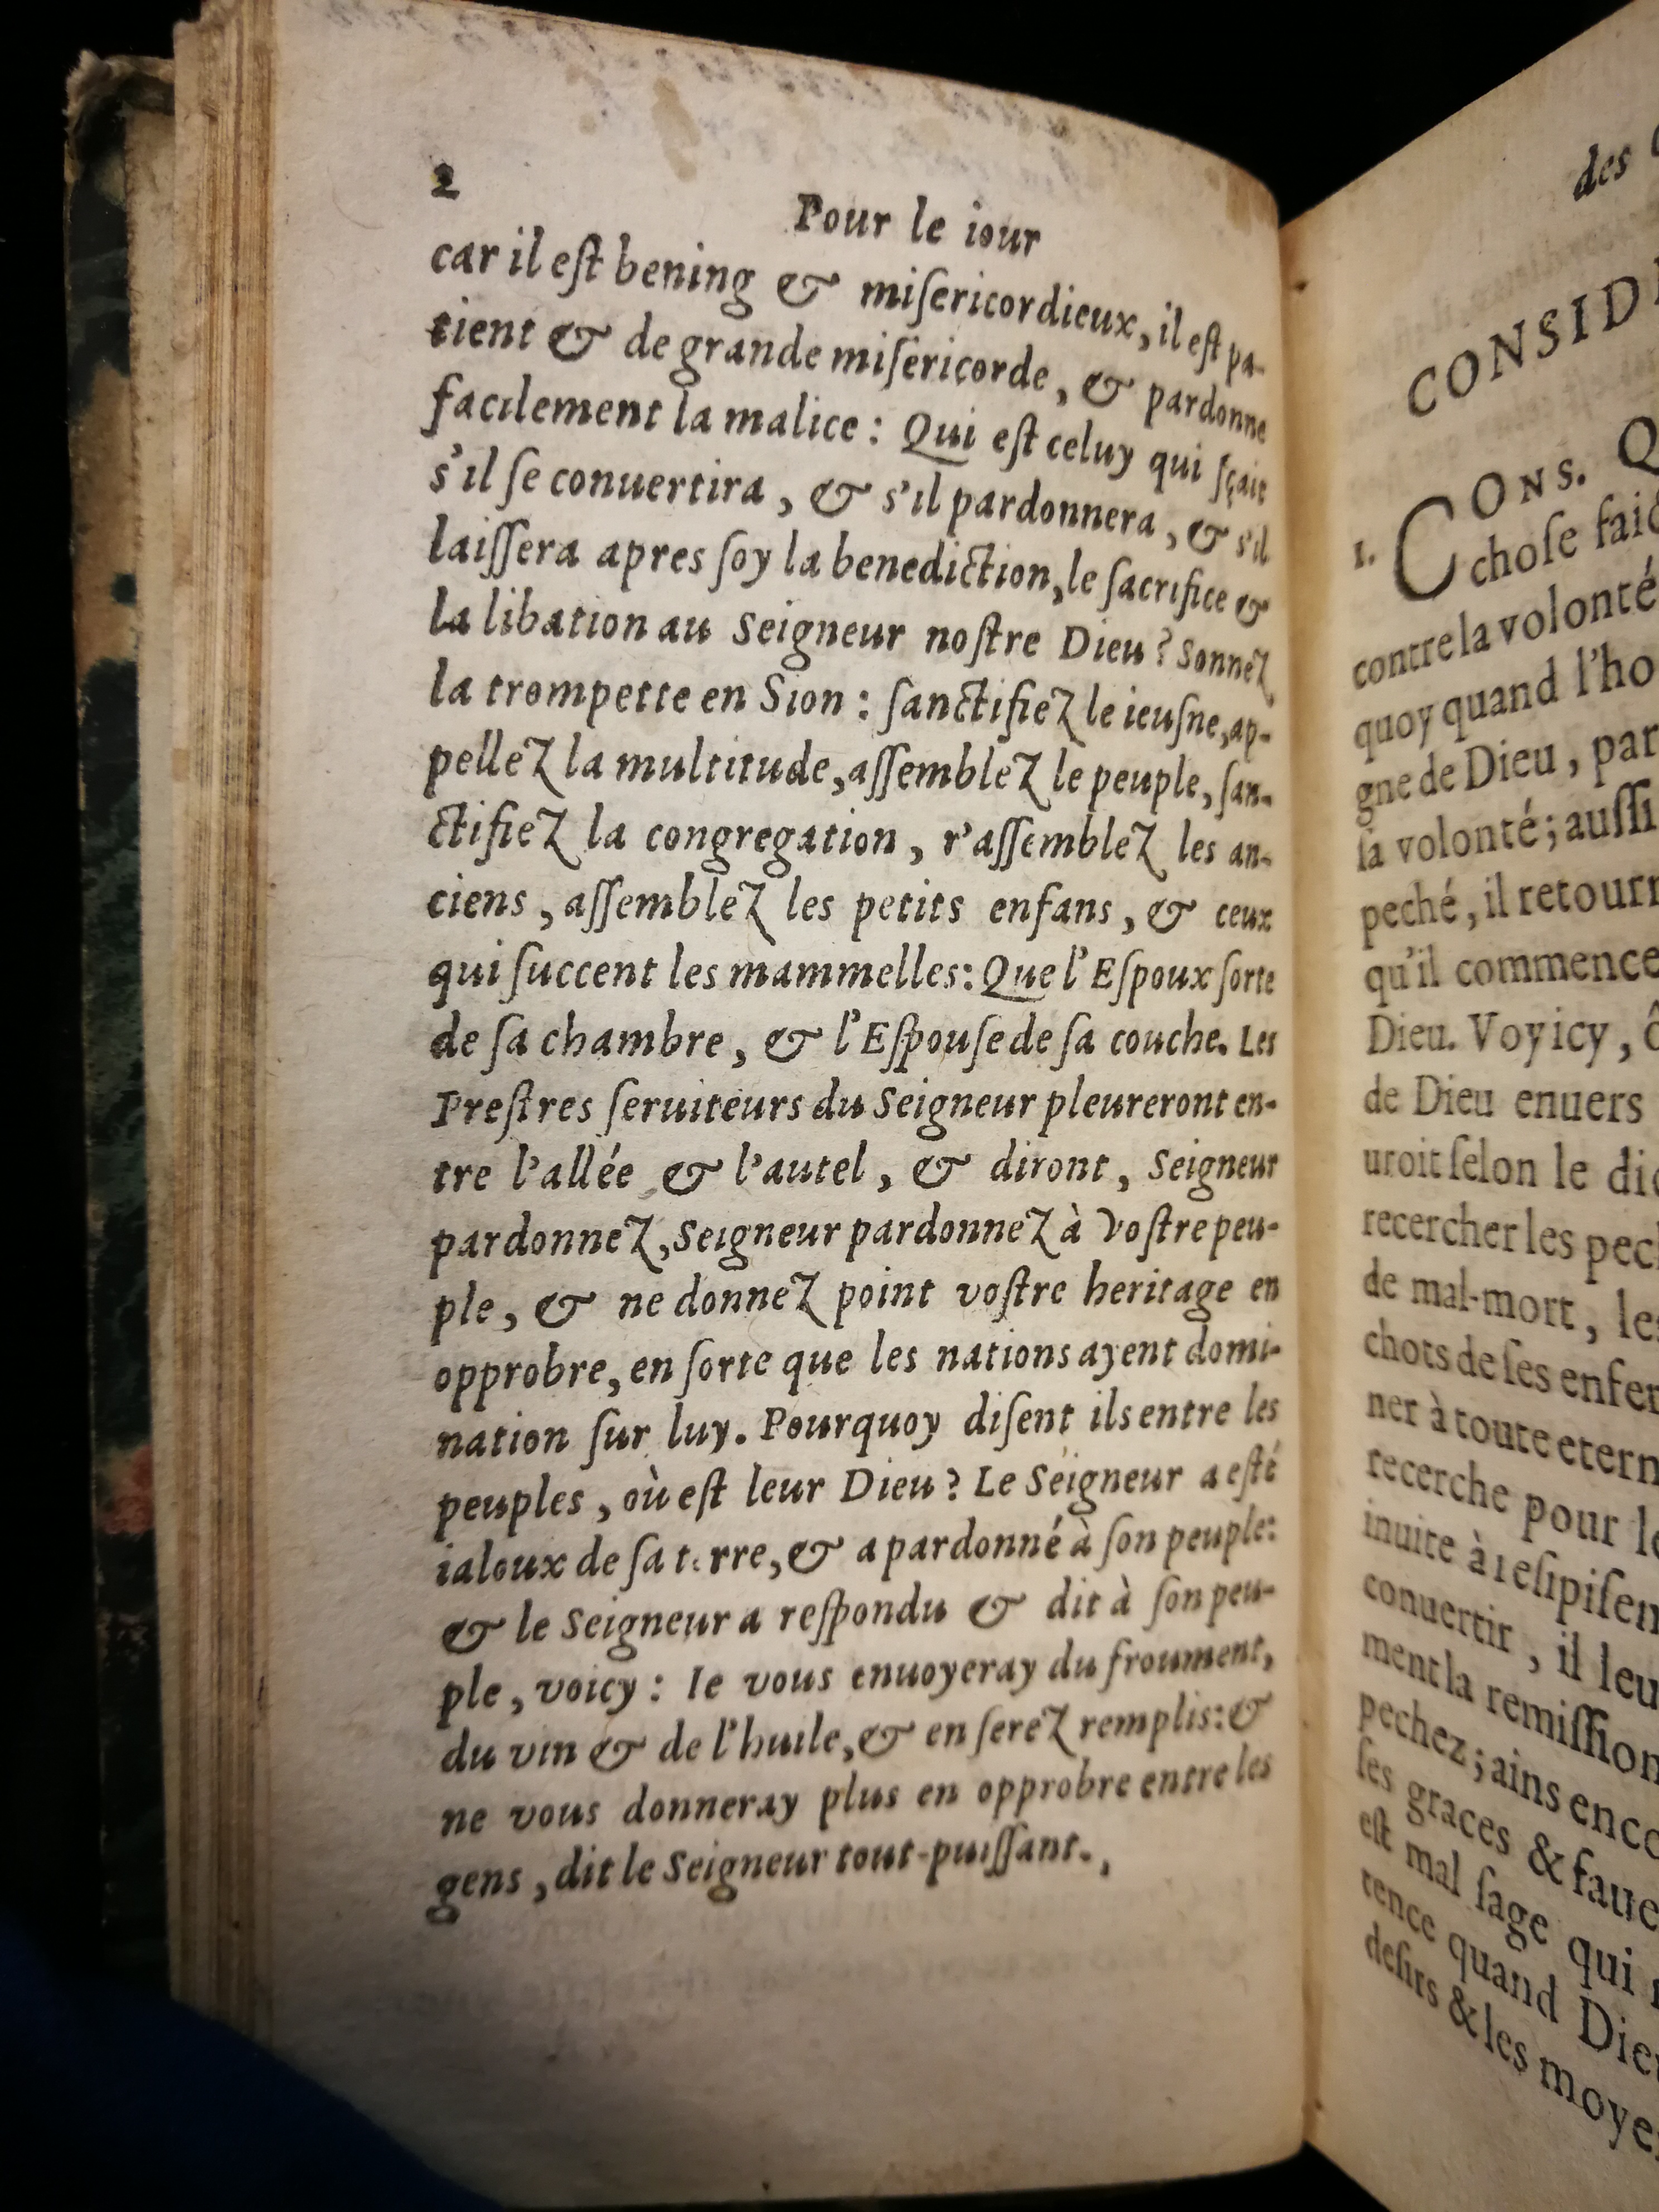 2
Pour le iour
car il eſt bening & miſericordieux, il eſt pa-
tient & de grande miſericorde, & pardonne
facilement la malice : Qui eſt celuy qui ſçait
s'il ſe conuertira, & s'il pardonnera, & s'il
laiſſera apres ſoy la benediction, le ſacrifice &
la libation au Seigneur noſtre Dieu ? Sonnez
la trompette en Sion : ſanctifiez le ieuſne, ap-
pellez la multitude, aſſemblez le peuple, ſan-
ctifiez la congregation, r'aſſemblez les an-
ciens, aſſemblez les petits enfans, & ceux
qui ſuccent les mammelles: Que l'Eſpoux ſorte
de ſa chambre, & l'Eſpouſe de ſa couche. Les
Preſtres ſeruiteurs du Seigneur pleureront en-
tre l'allée & l'autel, & diront, Seigneur
pardonnez, Seigneur pardonnez à voſtre peu-
ple, & ne donnez point voſtre heritage en
opprobre, en ſorte que les nations ayent domi-
nation ſur luy. Pourquoy diſent ils entre les
peuples, où eſt leur Dieu ? Le Seigneur a eſté
ialoux de ſa terre, & a pardonné à ſon peuple:
& le Seigneur a reſpondu & dit à ſon peu-
ple, voicy : Ie vous enuoyeray du froument,
du vin & de l'huile, & en ſerez remplis: &
ne vous donneray plus en opprobre entre les
gens, dit le Seigneur tout-puiſſant.
des
CONSID
1. CONS. Q
choſe faic
contre la volonté
quoy quand l'ho
gne de Dieu, par
ſa volonté; auſſi
peché, il retourn
qu'il commence
Dieu. Voy icy, ô
de Dieu enuers
uroit ſelon le di
recercher les pec
de mal-mort, le
chots de ſes enfer
ner à toute etern
recerche pour l
inuite à reſipiſen
conuertir, il leu
ment la remiſſion
pechez; ains enco
ſes graces & faue
eſt mal ſage qui
tence quand Die
deſirs & les moye